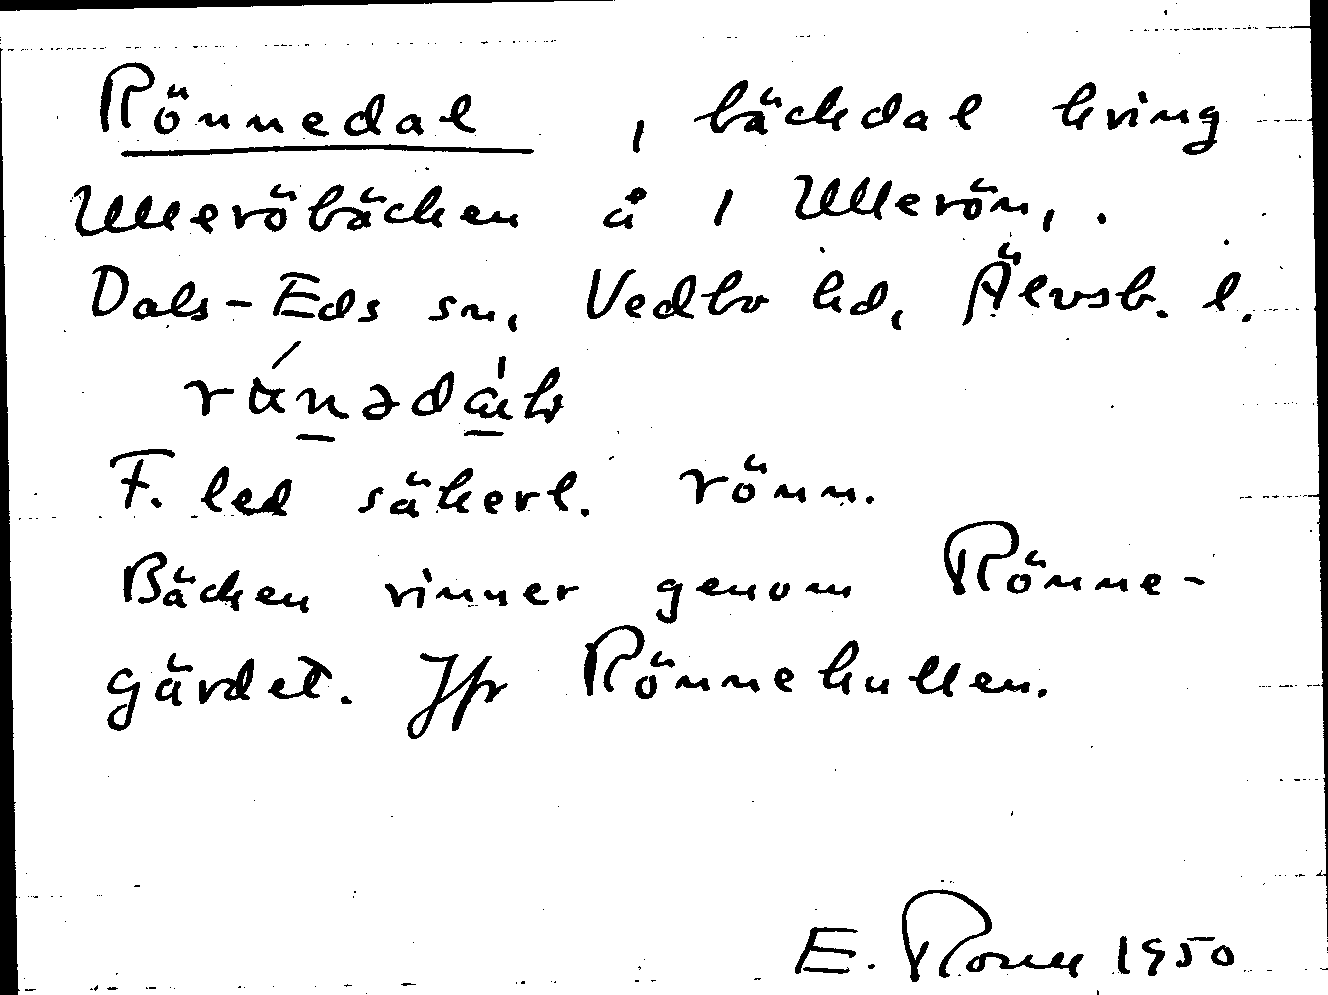 Rönnedal, bäckdal kring
Ulleröbäcken å 1 Ullerön,.
Dals-Eds sn, Vedbo hd, Älvsb. l.
F. led säkerl. rönn.
Bäcken rinner genom Rönne-
gärdet. Jfr Rönnekullen.
E. 1950